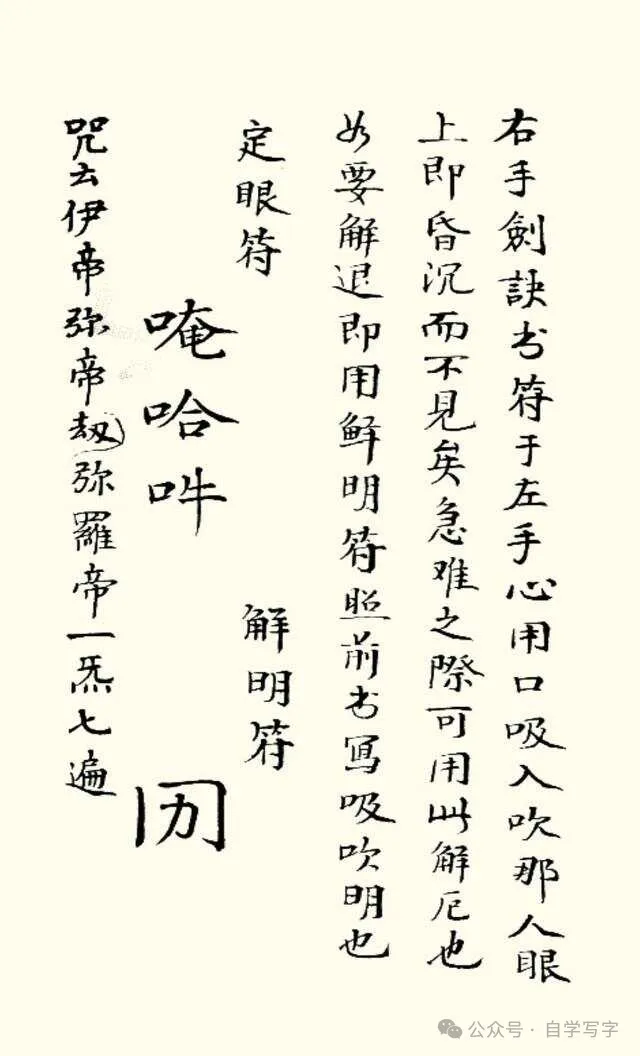 右手劍訣书符于左手心用口吸入吹那人眼
上即昏沉而不見矣急难之際可用此解厄也
如要解退即用鲜明符照前书写吸吹明也
定眼符
解明符
唵哈吽
咒云伊帝弥帝劫弥羅帝一炁七遍
公众号·自学写字